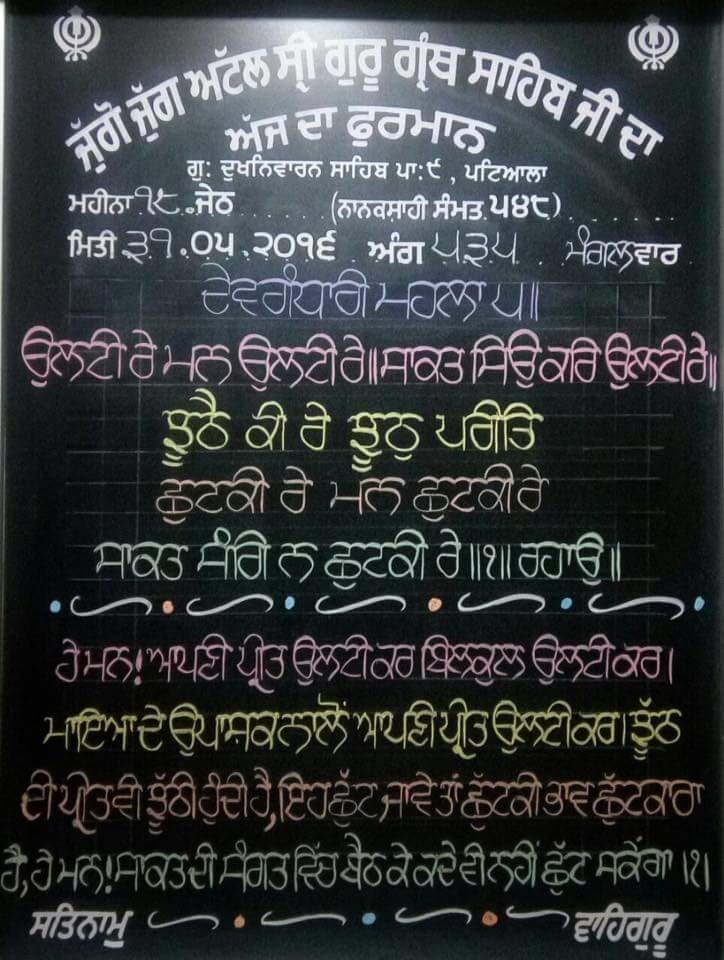 ਜੁੱਗੋ ਜੁੱਗ ਅਟੱਲ ਸ੍ਰੀ ਗੁਰੂ ਗ੍ਰੰਥ ਸਾਹਿਬ ਜੀ ਦਾ
ਅੱਜ ਦਾ ਫੁਰਮਾਨ
ਗੁ: ਦੁਖਨਿਵਾਰਨ ਸਾਹਿਬ ਪਾ:੯ , ਪਟਿਆਲਾ
ਮਹੀਨਾ ੧੮.ਜੇਠ (ਨਾਨਕਸ਼ਾਹੀ ਸੰਮਤ ੫੪੮)
ਮਿਤੀ ੩੧.੦੫.੨੦੧੬ ਅੰਗ ੫੩੫ ਮੰਗਲਵਾਰ
ਦੇਵਗੰਧਾਰੀ ਮਹਲਾ ੫॥
ਉਲਟੀ ਰੇ ਮਨ ਉਲਟੀ ਰੇ॥ਸਾਕਤ ਸਿਉ ਕਰਿ ਉਲਟੀ ਰੇ॥
ਝੂਠੈ ਕੀ ਰੇ ਝੂਠੁ ਪਰੀਤਿ
ਛੁਟਕੀ ਰੇ ਮਨ ਛੁਟਕੀ ਰੇ
ਸਾਕਤ ਸੰਗਿ ਨ ਛੁਟਕੀ ਰੇ॥੧॥ ਰਹਾਉ॥
ਹੇ ਮਨ!ਅਪਣੀ ਪ੍ਰੀਤ ਉਲਟੀ ਕਰ ਬਿਲਕੁਲ ਉਲਟੀ ਕਰ।
ਮਾਇਆ ਦੇ ਉਪਾਸ਼ਕ ਨਾਲੋਂ ਆਪਣੀ ਪ੍ਰੀਤ ਉਲਟੀ ਕਰ। ਝੂੱਠ
ਦੀ ਪ੍ਰੀਤ ਵੀ ਝੂੱਠੀ ਹੁੰਦੀ ਹੈ,ਇਹ ਛੁੱਟ ਜਾਵੇ ਤਾਂ ਛੁੱਟਕੀ ਭਾਵ ਛੁੱਟਕਾਰਾ
ਹੈ,ਹੇ ਮਨ!ਸਾਕਤ ਦੀ ਸੰਗਤ ਵਿੱਚ ਬੈਠ ਕੇ ਕਦੇ ਵੀ ਨਹੀਂ ਛੁੱਟ ਸਕੇਂਗਾ।੧।
ਸਤਿਨਾਮੁ ਵਾਹਿਗੁਰੂ